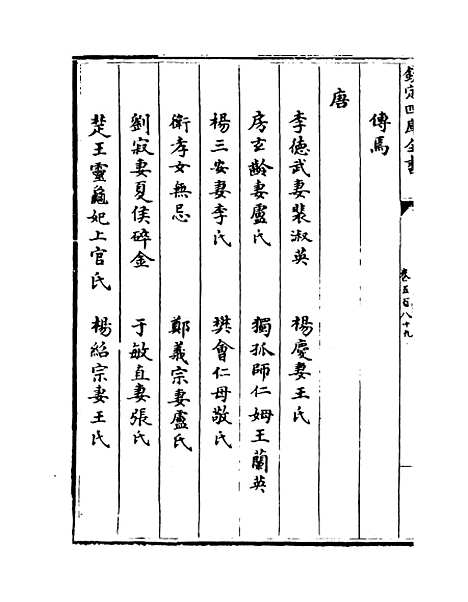 欽定四庫全書
卷五百八十九
傳馬
唐
李徳武妻裴淑英 楊慶妻王氏
房玄齡妻盧氏 獨孤師仁姆王蘭英
楊三安妻李氏 樊會仁母敬氏
衛孝女無忌 鄭義宗妻盧氏
劉寂妻夏侯碎金 于敏直妻張氏
楚王靈龜妃上官氏 楊紹宗妻王氏